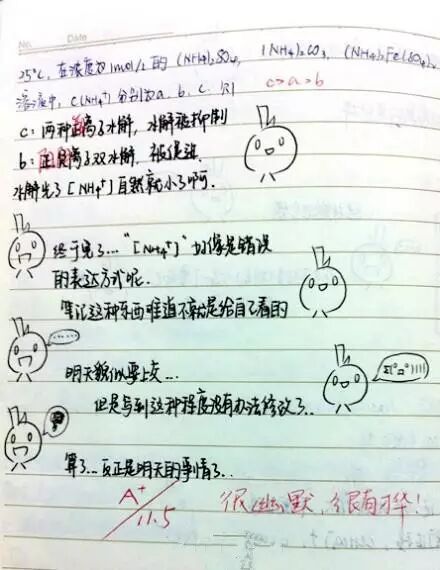 No. Date
25°C, 在浓度为1mol/L的 (NH4)2SO4, (NH4)2CO3, (NH4)2Fe(SO4)2
溶液中, c(NH4+)分别为a、b、c. 则 c>a>b
c: 两种阳离子水解, 水解被抑制
b: 正负离子双水解, 被促进.
水解完了[NH4+]自然就小了啊.
终于完了… "[NH4+]" 好像是错误
的表达方式呢.
算了这种东西难道不就是给自己看的
......
明天貌似要上交…
Σ(°д°)!!!!
但是写到这种程度没有办法修改了..
算了… 反正是明天的事情了..
A+
11.5
很幽默, 很有才华!